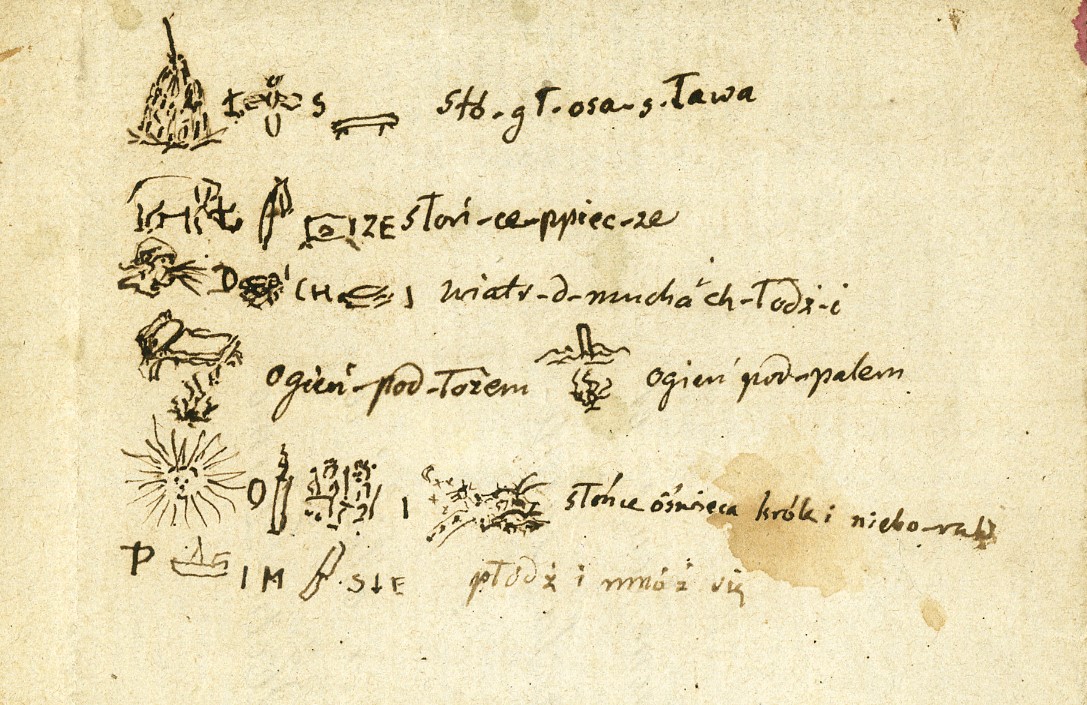 Ł S stó-gł-osa-s-ława
Ł IZE słoń-ce-ppiec-ze
D CH I wiatr-d-muchá ch-łodź-i
ogień-pod-łożem ogień pod-palem
O I słońce óświeca król i niebo-rak
P I M SIĘ płódź i mnóż się